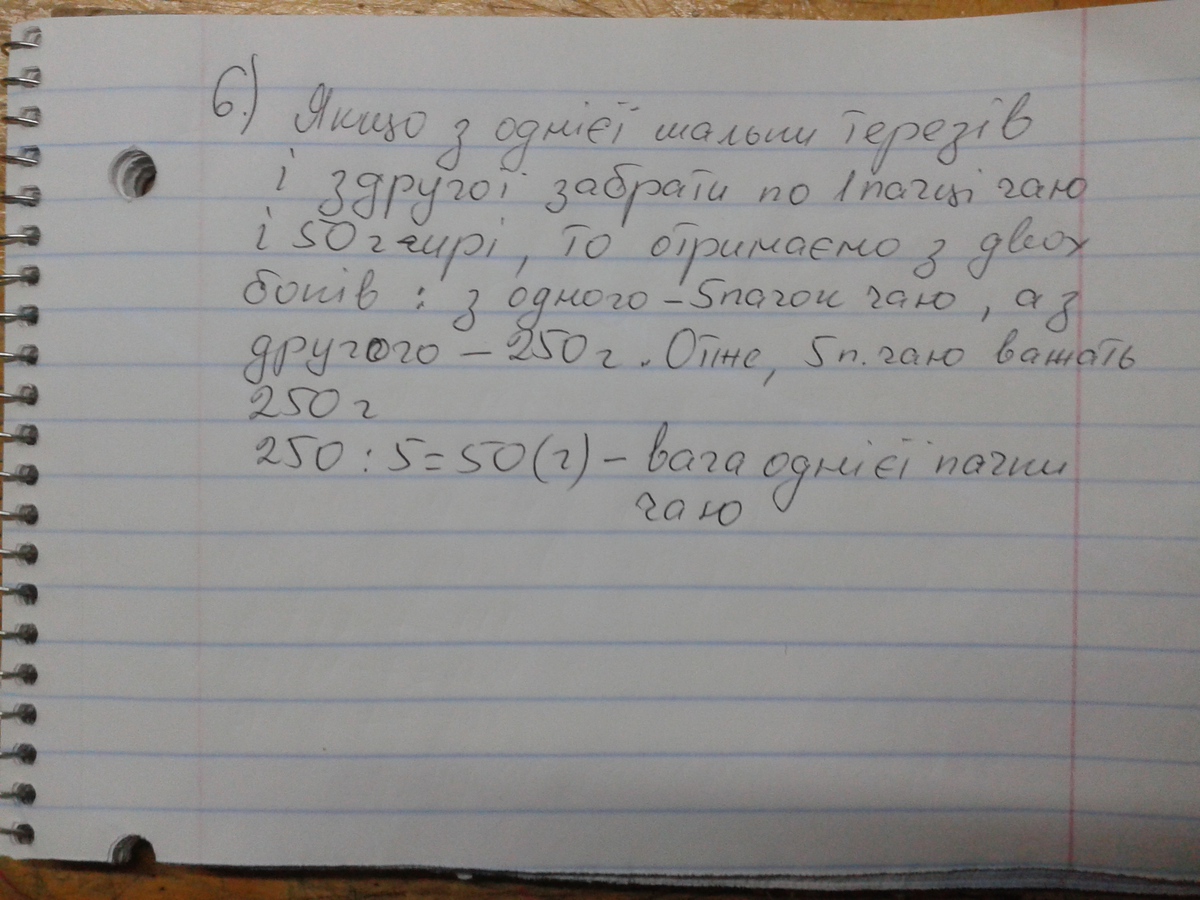 6.) Якщо з однієї шальки терезів
і здругої забрати по 1 пачці чаю
і 50 г гирі, то отримаємо з двох
боків : з одного – 5 пачок чаю, а з
другого – 250 г. Отже, 5 п. чаю важать
250 г
250 : 5 = 50 (г) – вага однієї пачки
чаю